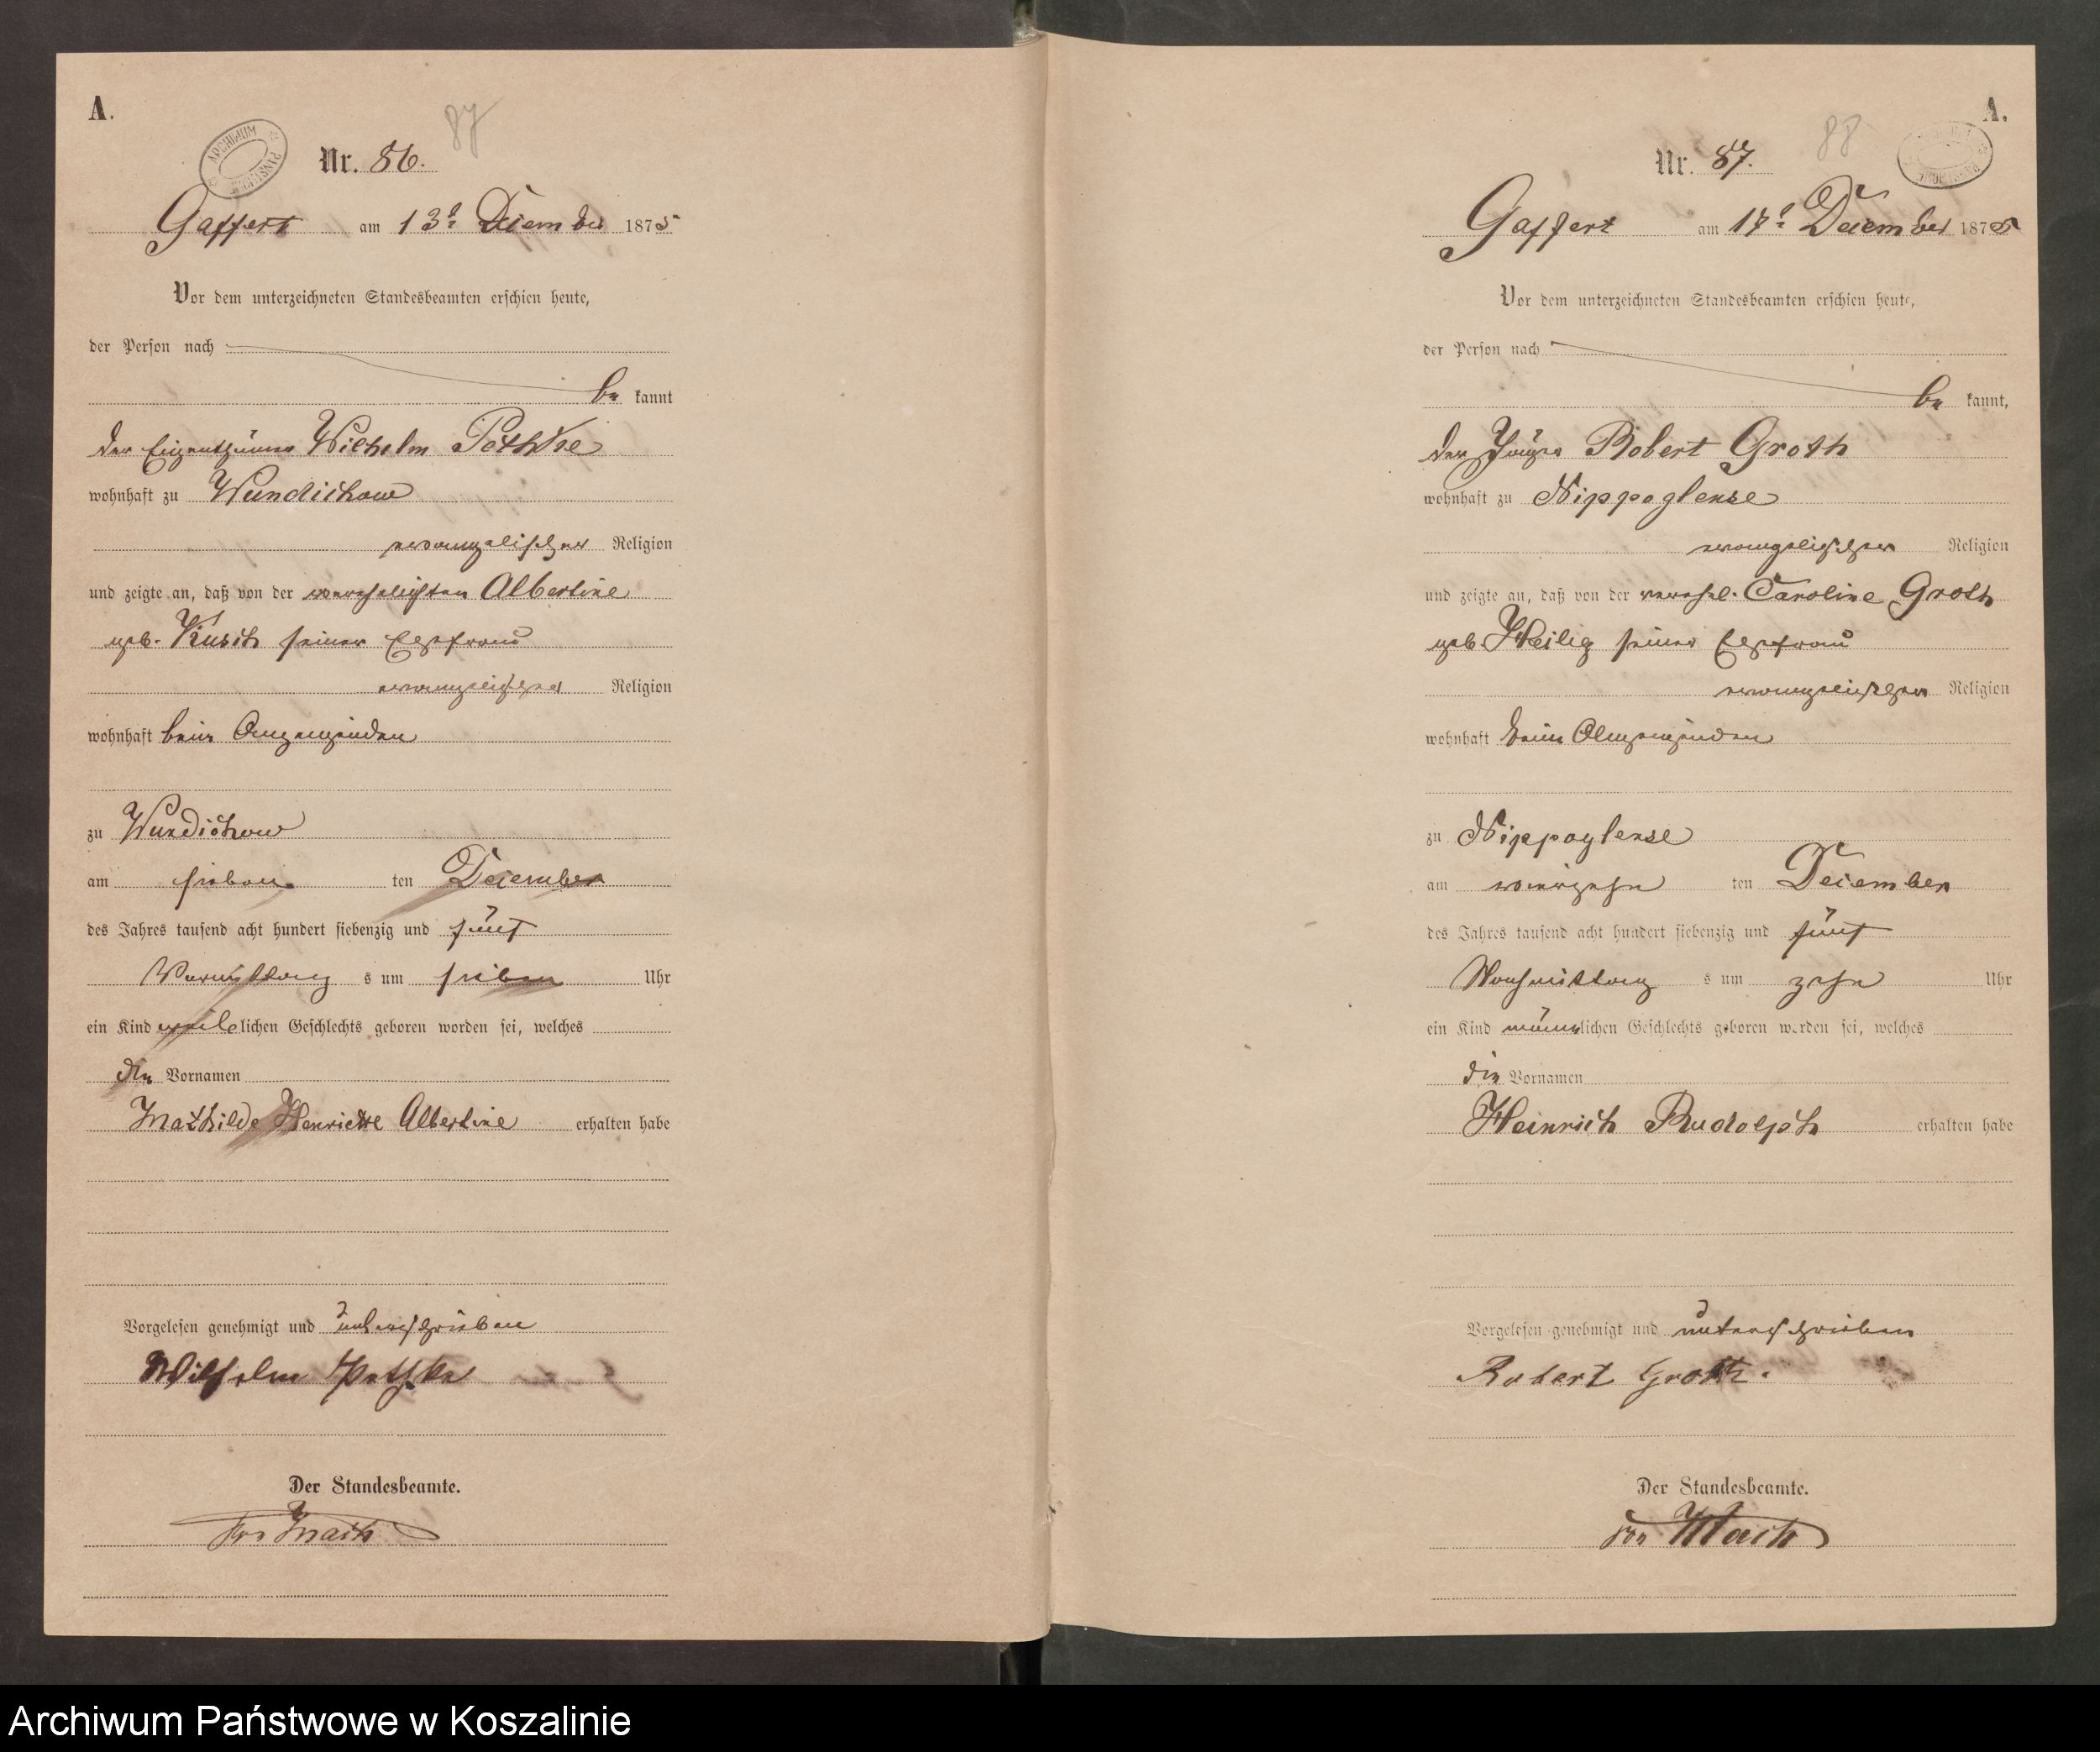 A.
87
ARCHIWUM PAŃSTWOWE
Nr. 86.
Gaffert am 13t Dezember 1875
Vor dem unterzeichneten Standesbeamten erschien heute,
der Person nach
be kannt
der Eigenthümer Wilhelm Pethke
wohnhaft zu Wundichow
evangelischer Religion
und zeigte an, daß von der verehelichten Albertine
geb. Kusch seiner Ehefrau
evangelischer Religion
wohnhaft beim Anzeigenden
zu Wundichow
am sieben ten Dezember
des Jahres tausend acht hundert siebenzig und fünf
Vormittag s um sieben Uhr
ein Kind weib lichen Geschlechts geboren worden sei, welches
die Vornamen
Mathilde Henriette Albertine erhalten habe
Vorgelesen genehmigt und unterschrieben
Wilhelm Pethke
Der Standesbeamte.
von Mach
A.
88
Nr. 87.
Gaffert am 17t Dezember 1875
Vor dem unterzeichneten Standesbeamten erschien heute,
der Person nach
be kannt,
der Jäger Robert Groth
wohnhaft zu Nippoglense
evangelischer Religion
und zeigte an, daß von der verehel. Caroline Groth
geb. Heilig seiner Ehefrau
evangelischer Religion
wohnhaft beim Anzeigenden
zu Nippoglense
am vierzehn ten Dezember
des Jahres tausend acht hundert siebenzig und fünf
Nachmittag s um zehn Uhr
ein Kind männ lichen Geschlechts geboren worden sei, welches
die Vornamen
Heinrich Rudolph erhalten habe
Vorgelesen genehmigt und unterschrieben
Robert Groth.
Der Standesbeamte.
von Mach
Archiwum Państwowe w Koszalinie